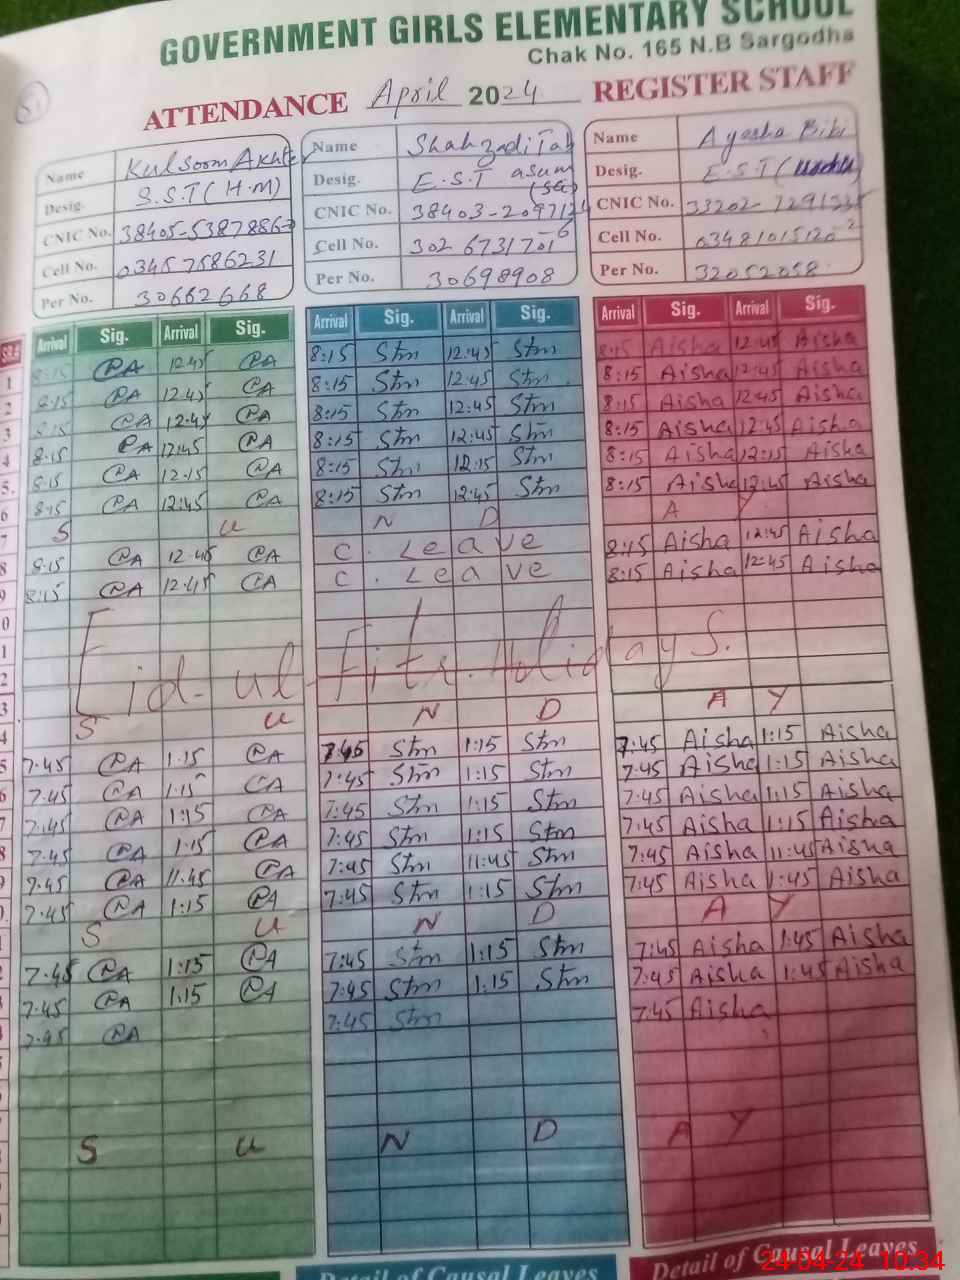 GOVERNMENT GIRLS ELEMENTARY SCHOOL
Chak No. 165 N.B Sargodha
ATTENDANCE April 2024 REGISTER STAFF
Name Kulsoom Akhter
Desig. S.S.T (H.M)
CNIC No. 38405-5387886-
Cell No. 03457586231
Per No. 30662668
Name Shahzadi Tab asum
Desig. E.S.T (Sci)
CNIC No. 38403-2097124
Cell No. 302 6731701 6
Per No. 30698908
Name Ayesha Bibi
Desig. E.S.T
CNIC No. 33202-7291335
Cell No. 03481015120 2
Per No. 32052058
SR.# Arrival Sig. Arrival Sig. Arrival Sig. Arrival Sig. Arrival Sig. Arrival Sig.
1 8:15 @A 12:45 @A 8:15 Stm 12:45 Stm 8:15 Aisha 12:45 Aisha
2 8:15 @A 12:45 @A 8:15 Stm 12:45 Stm 8:15 Aisha 12:45 Aisha
3 8:15 @A 12:45 @A 8:15 Stm 12:45 Stm 8:15 Aisha 12:45 Aisha
4 8:15 @A 12:45 @A 8:15 Stm 12:45 Stm 8:15 Aisha 12:45 Aisha
5 8:15 @A 12:15 @A 8:15 Stm 12:15 Stm 8:15 Aisha 12:15 Aisha
6 8:15 @A 12:45 @A 8:15 Stm 12:45 Stm 8:15 Aisha 12:45 Aisha
7 S u N D A Y
8 8:15 @A 12:45 @A C. Leave 8:15 Aisha 12:45 Aisha
9 8:15 @A 12:45 @A C. Leave 8:15 Aisha 12:45 Aisha
0
1
2 Eid-ul-Fitr Holidays.
3
4 S u N D A Y
5 7:45 @A 1:15 @A 7:45 Stm 1:15 Stm 7:45 Aisha 1:15 Aisha
6 7:45 @A 1:15 @A 7:45 Stm 1:15 Stm 7:45 Aisha 1:15 Aisha
7 7:45 @A 1:15 @A 7:45 Stm 1:15 Stm 7:45 Aisha 1:15 Aisha
8 7:45 @A 1:15 @A 7:45 Stm 1:15 Stm 7:45 Aisha 1:15 Aisha
9 7:45 @A 11:45 @A 7:45 Stm 11:45 Stm 7:45 Aisha 11:45 Aisha
0 7:45 @A 1:15 @A 7:45 Stm 1:15 Stm 7:45 Aisha 1:45 Aisha
1 S u N D A Y
2 7:45 @A 1:15 @A 7:45 Stm 1:15 Stm 7:45 Aisha 1:45 Aisha
3 7:45 @A 1:15 @A 7:45 Stm 1:15 Stm 7:45 Aisha 1:45 Aisha
7:45 @A 7:45 Stm 7:45 Aisha
S u N D A Y
Detail of Causal Leaves Detail of Causal Leaves
24-04-24 10:34